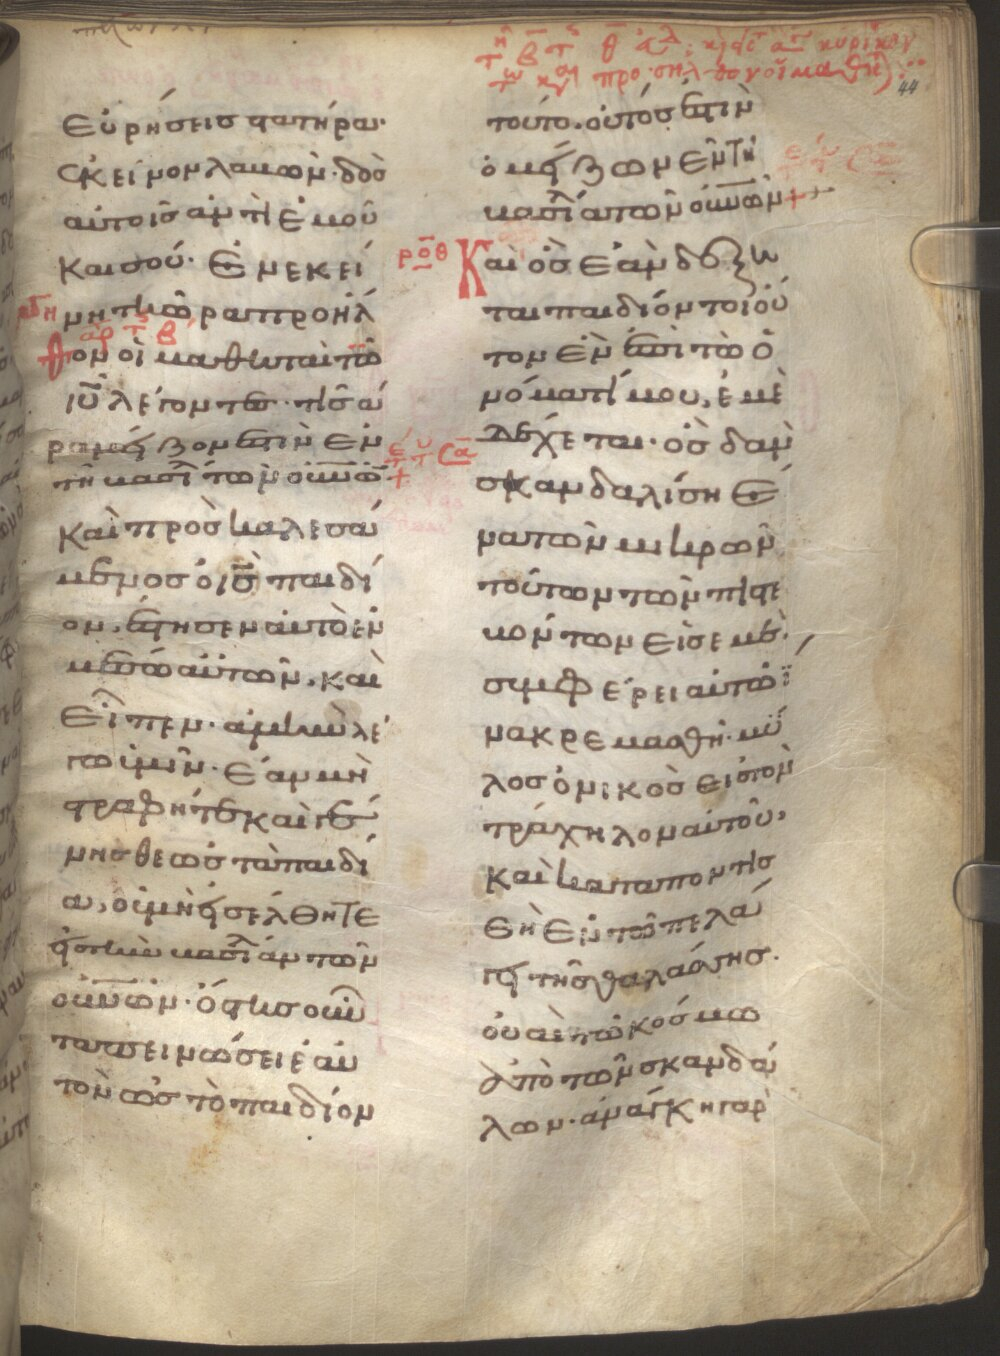 44
εὑρήσεις στατῆρα·
ἐκεῖνον λαβὼν· δὸς
αὐτοῖς ἀντὶ ἐμοῦ
καὶ σοῦ· Ἐν ἐκεί
νη τῆ ὥρα προσῆλ
θον οἱ μαθηταὶ τῶ
ιῦ λέγοντες· τίς ἄ
ρα μείζων ἐστὶν ἐν
τῆ βασιλεία τῶν οὐνῶν
καὶ προσκαλεσά
μενος ὁ ις παιδί
ον, ἔστησεν αὐτὸ ἐν
μέσω αὐτῶν, καὶ
εἶπεν· ἀμὴν λέ
γω ὑμῖν· ἐὰν μὴ
στραφῆτε καὶ γέ
νησθε ὡς τὰ παιδί
α, οὐ μὴ εἰσέλθητε
εἰς τὴν βασιλείαν τῶν
οὐνῶν· ὅστις οὖν
ταπεινώσει ἑαυ
τὸν ὡς τὸ παιδίον
τοῦτο, οὗτός ἐστιν
ὁ μείζων ἐν τῆ
βασιλεία τῶν οὐνῶν
ροθ Καὶ ὃς ἐὰν δέξη
ται παιδίον τοιοῦ
τον ἓν ἐπὶ τῶ ὀ
νόματί μου, ἐμὲ
δέχεται· ὃς δ' ἂν
σκανδαλίση ἕ
να τῶν μικρῶν
τούτων τῶν πιστε
υόντων εἰς ἐμὲ·
συμφέρει αὐτῶ ἵ
να κρεμασθῆ μύ
λος ὀνικὸς εἰς τὸν
τράχηλον αὐτοῦ,
καὶ καταποντισ
θῆ ἐν τῶ πελά
γει τῆς θαλάσσης.
οὐαὶ τῶ κόσμω
ἀπὸ τῶν σκανδά
λων· ἀνάγκη γὰρ